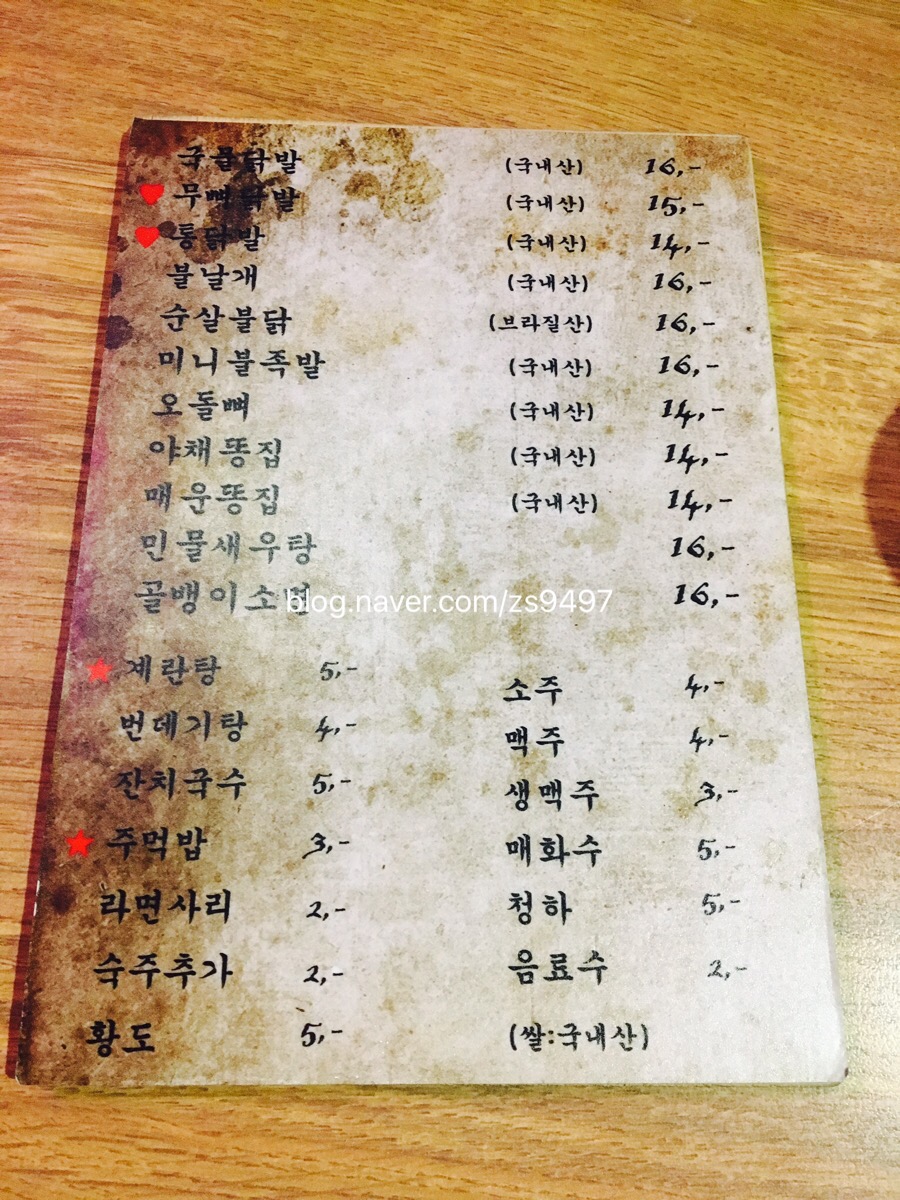 국물닭발 (국내산) 16,-
무뼈닭발 (국내산) 15,-
통닭발 (국내산) 14,-
불날개 (국내산) 16,-
순살불닭 (브라질산) 16,-
미니불족발 (국내산) 16,-
오돌뼈 (국내산) 14,-
야채똥집 (국내산) 14,-
매운똥집 (국내산) 14,-
민물새우탕 16,-
골뱅이소면 16,-
blog.naver.com/zs9497
계란탕 5,-
번데기탕 4,-
잔치국수 5,-
주먹밥 3,-
라면사리 2,-
숙주추가 2,-
황도 5,-
소주 4,-
맥주 4,-
생맥주 3,-
매화수 5,-
청하 5,-
음료수 2,-
(쌀:국내산)